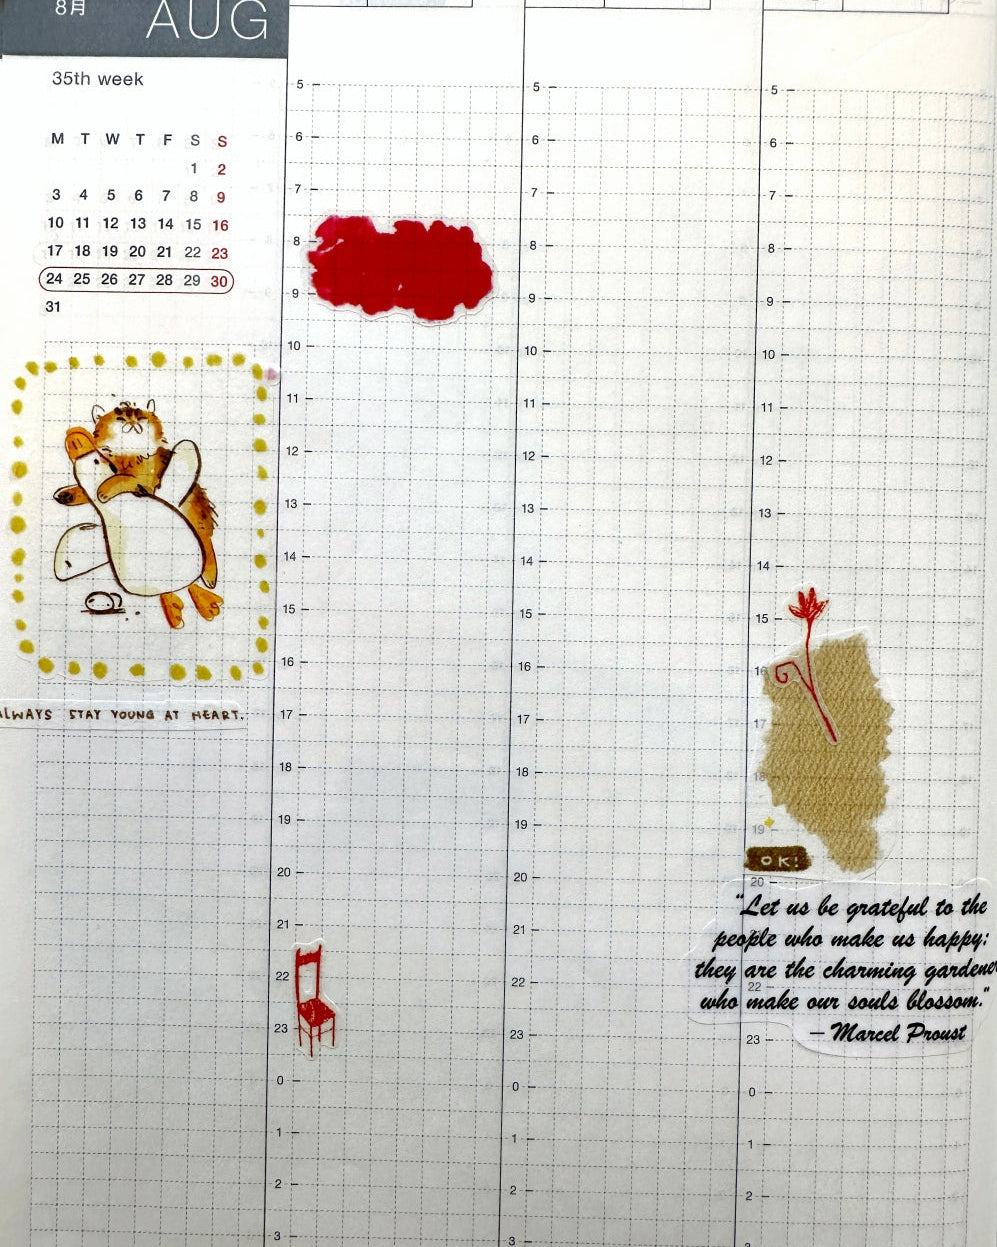 8月
AUG
35th week
M T W T F S S
1 2
3 4 5 6 7 8 9
10 11 12 13 14 15 16
17 18 19 20 21 22 23
24 25 26 27 28 29 30
31
ALWAYS STAY YOUNG AT HEART.
5
6
7
8
9
10
11
12
13
14
15
16
17
18
19
20
21
22
23
0
1
2
3
5
6
7
8
9
10
11
12
13
14
15
16
17
18
19
20
21
22
23
0
1
2
3
5
6
7
8
9
10
11
12
13
14
15
16
17
18
19
OK!
20
"Let us be grateful to the
people who make us happy:
they are the charming gardener
22
who make our souls blossom."
— Marcel Proust
23
0
1
2